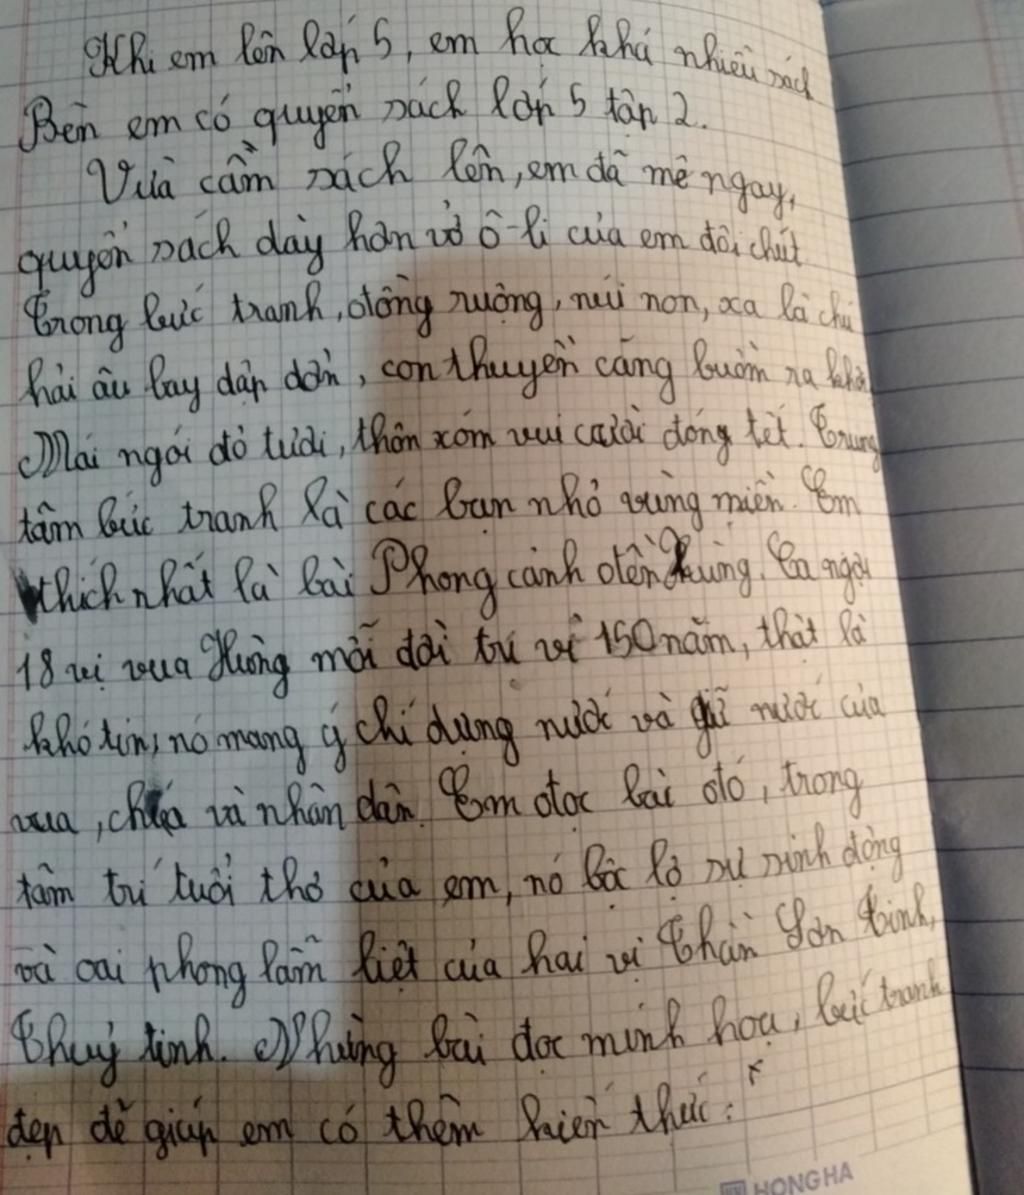 Khi em lên lớp 5, em học khá nhiều sách
Bên em có quyển sách lớp 5 tập 2.
Vừa cầm sách lên, em đã mê ngay,
quyển sách dày hơn vở ô-li của em đôi chút
Trong bức tranh, đồng ruộng, núi non, xa là chú
hải âu bay dập dờn, con thuyền căng buồm ra khơi
Mái ngói đỏ tươi, thôn xóm vui đóng tết. Trung
tâm bức tranh là các bạn nhỏ vùng miền. Em
thích nhất là bài Phong cảnh đền Hùng. Ca ngợi
18 vị vua Hùng mỗi đời trị vì 150 năm, thật là
khó tin, nó mang ý chí dựng nước và giữ nước của
vua, chúa và nhân dân. Em đọc bài đó, trong
tâm trí tuổi thơ của em, nó bộc lộ sự sinh động
và oai phong lẫm liệt của hai vị Thần Sơn tinh,
Thuỷ tinh. Những bài đọc minh hoạ, bức tranh
đẹp đẽ giúp em có thêm kiến thức.
HONG HA